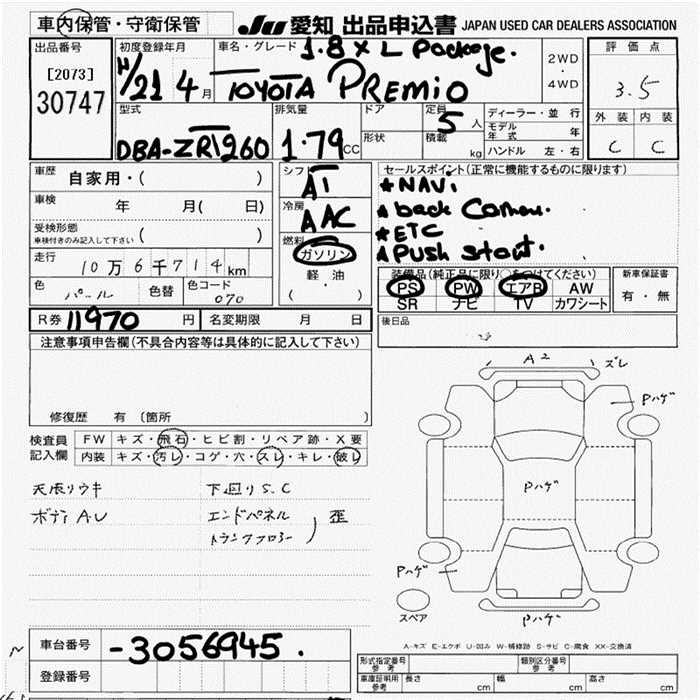 車内保管・守衛保管
JU 愛知 出品申込書 JAPAN USED CAR DEALERS ASSOCIATION
出品番号
[2073]
30747
初度登録年月
H/21 4月
車名・グレード 1.8 X L Package.
TOYOTA PREMIO
2WD
・
4WD
評価点
3.5
外装 内装
C C
型式
DBA-ZRT260
排気量
1.79 CC
ドア
形状
定員
5人
積載
kg
ディーラー・並行
モデル年式 年
ハンドル 左・右
車歴 自家用・( )
車検 年 月( 日)
受検形態
車検付きのみ記入して下さい ( )
走行
10万6千714km
色
パール
色替
色コード
070
シフト
AT
冷房
AAC
燃料
ガソリン
軽油
( ・ )
セールスポイント(正常に機能するものに限ります)
★NAVi
★back Camera.
★ETC
★Push start.
装備品(純正品に限り○をつけてください)
PS PW エアB AW
SR ナビ TV カワシート
新車保証書
有・無
後日品
R券 11970 円
名変期限 月 日
注意事項申告欄(不具合内容等は具体的に記入して下さい)
修復歴 有 (箇所
検査員
記入欄
FW キズ・飛石・ヒビ割・リペア跡・X要
内装 キズ・汚レ・コゲ・穴・スレ・キレ・破レ
天張リウキ
ボディ A.U
下廻りS.C
エンドパネル
トランクフロアー
歪
A2 ズレ
Pハゲ
Pハゲ
Pハゲ
Pハゲ
スペア
A-キズ E-エクボ U-凹み W-補修跡 S-サビ C-腐食 XX-交換済
車台番号 -3056945.
登録番号
形式指定番号
参考
類別区分番号
参考
車庫証明用
参考
長さ cm 幅 cm 高さ cm